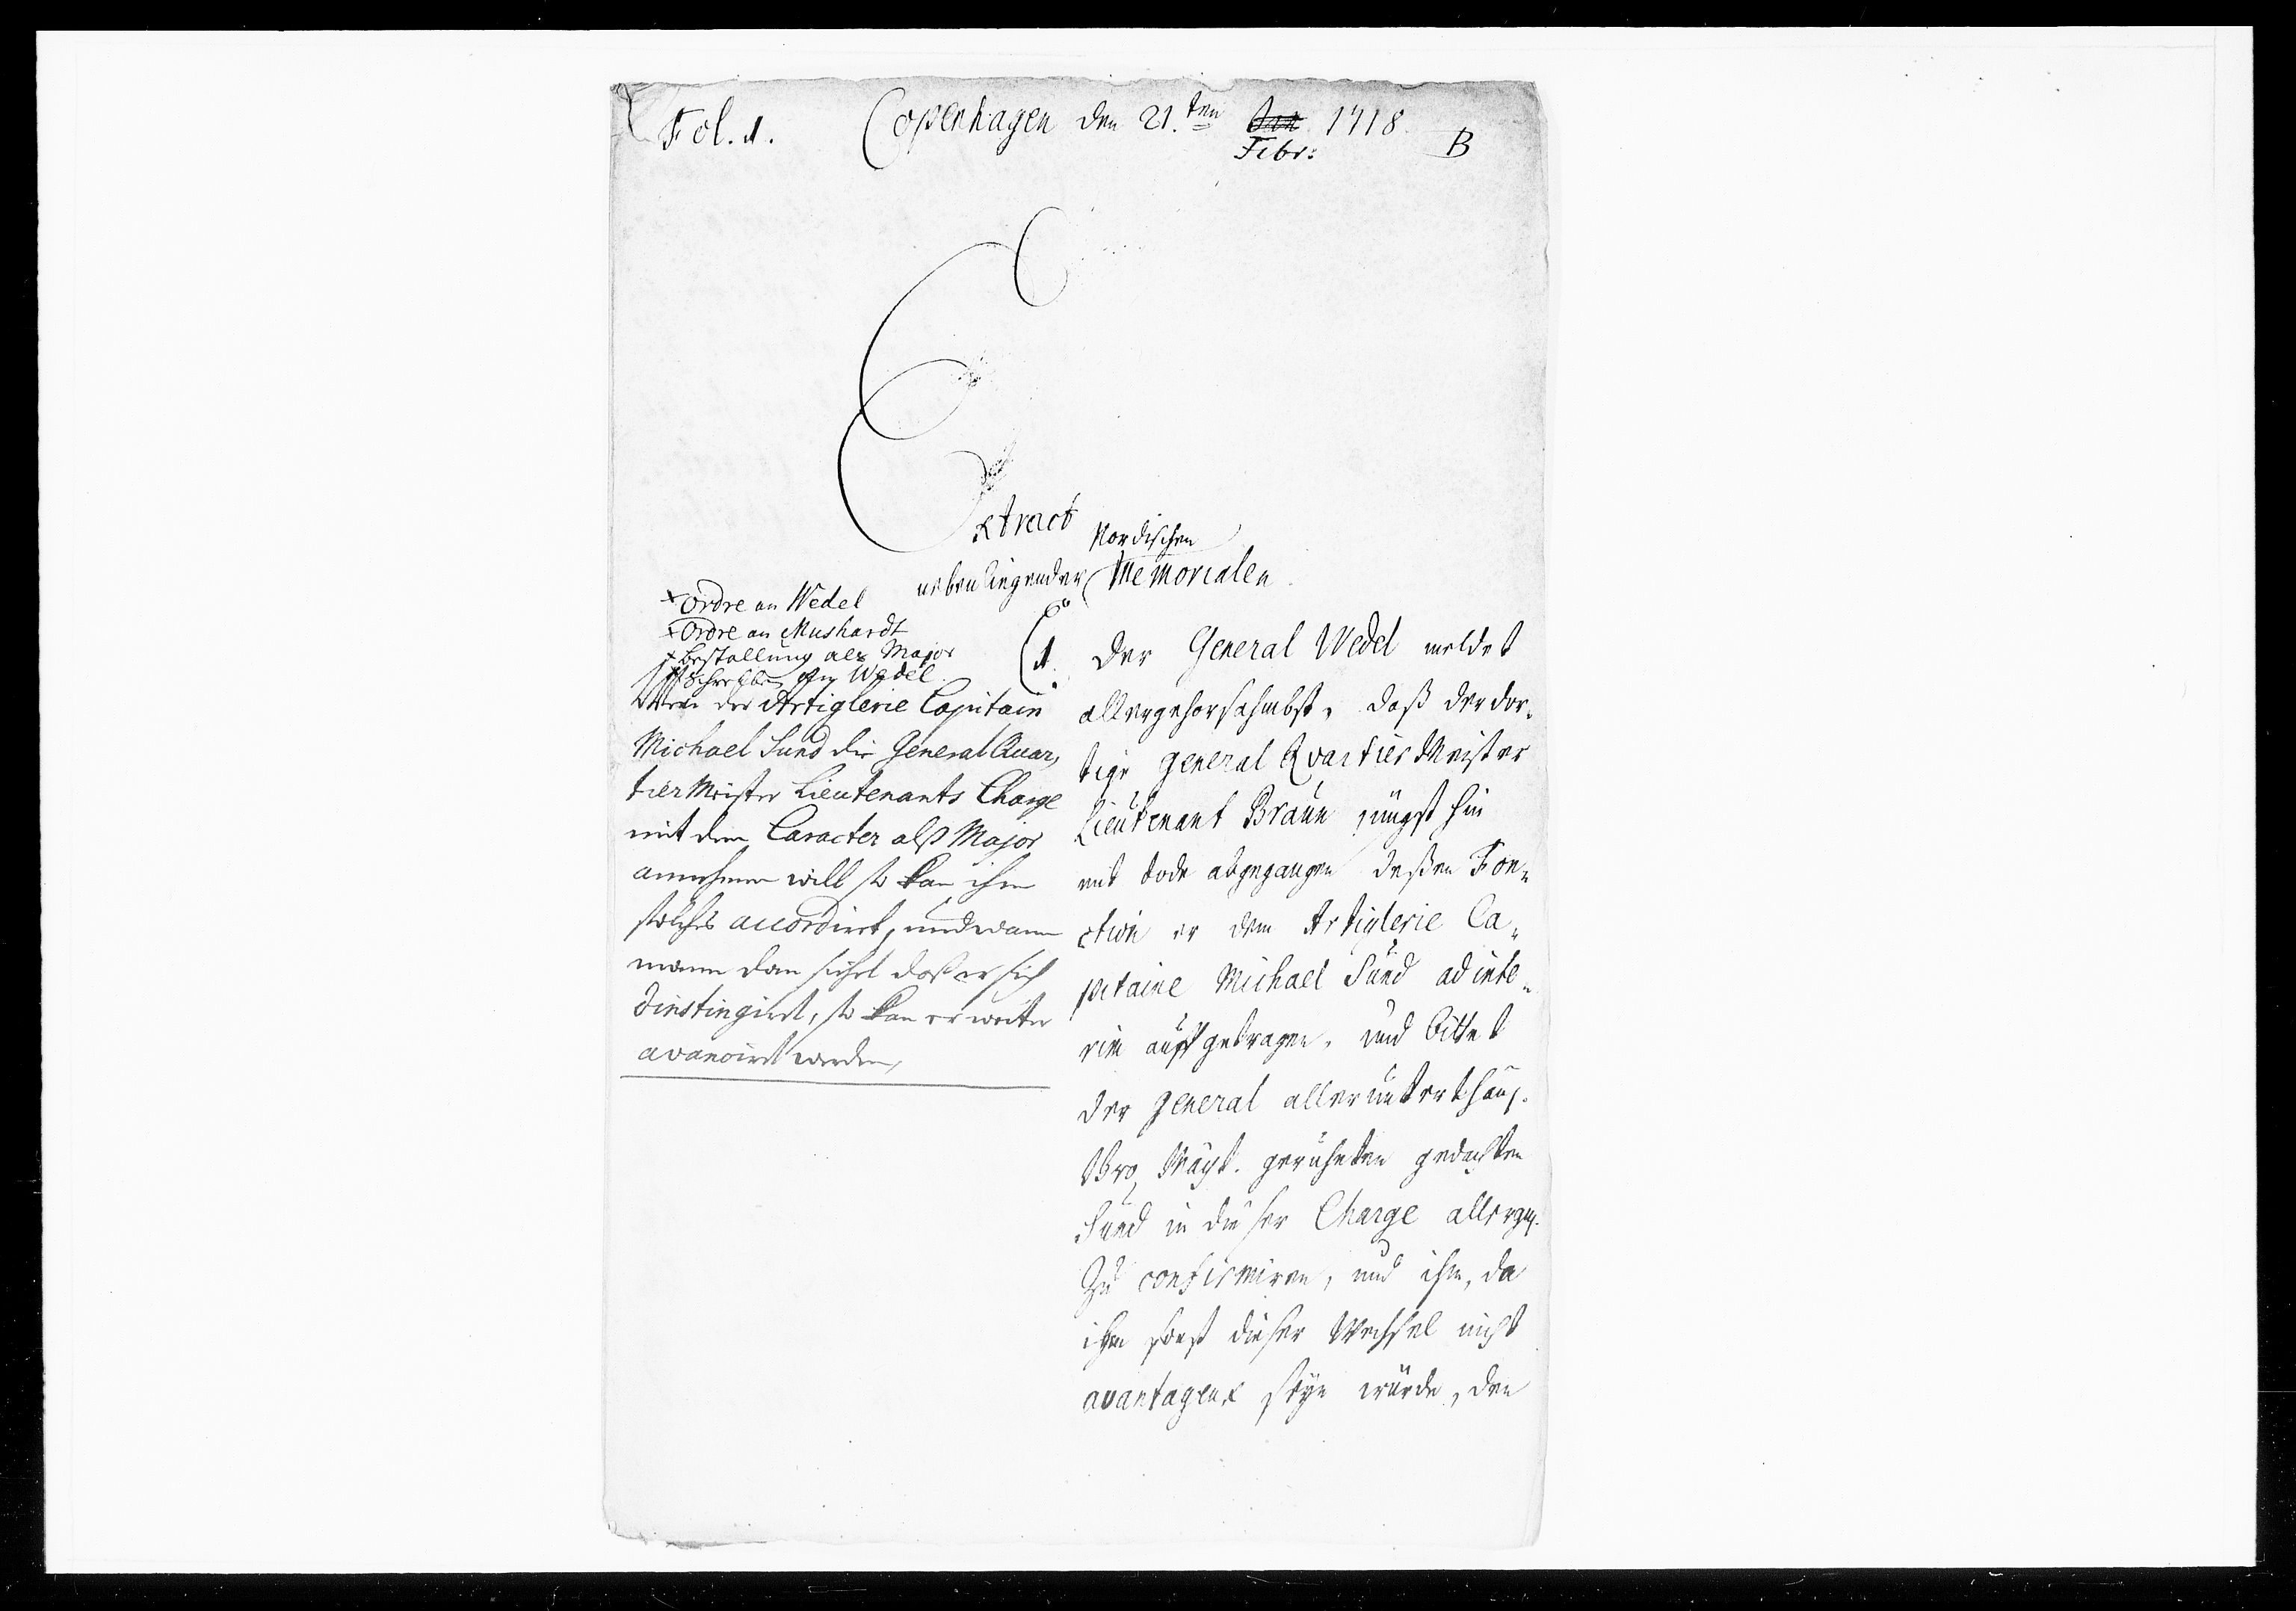 Fol. 1. Copenhagen den 21.ten Jan 1718. B
Febr:
Extract
Nordischen
nebenliegender Memorialen.
x Ordre an Wedel
x Ordre an Mushardt
x Bestallung als Major
x Schreiben an Wedel.
Wen der Artiglerie Capitain
Michael Sund die General Quar,
tier Meister Lieutenants Charge
mit dem Caracter alß Major
annehmen will so kan ihm
solches accordirt, und wann
mann dan siehet daß er sich
dinstingirt, so kan er weiter
avancirt werden,
1. Der General Wedel meldet
allergehorsahmbst, daß der dor„
tige General Qvartier Meister
Lieutenant Braun jüngst hin
mit tode abgegangen deßen Fon„
ction er dem Artiglerie Ca„
pitaine Michael Sund ad inte„
rim auffgetragen, und bittet
der General allerunterthänj.
Ewr. Mayt. geruheten gedachten
Sund in dieser Charge allergn.
zu confirmiren, und ihm, da
ihm sonst dieser Wechsel nicht
avantageux seyn würde, den